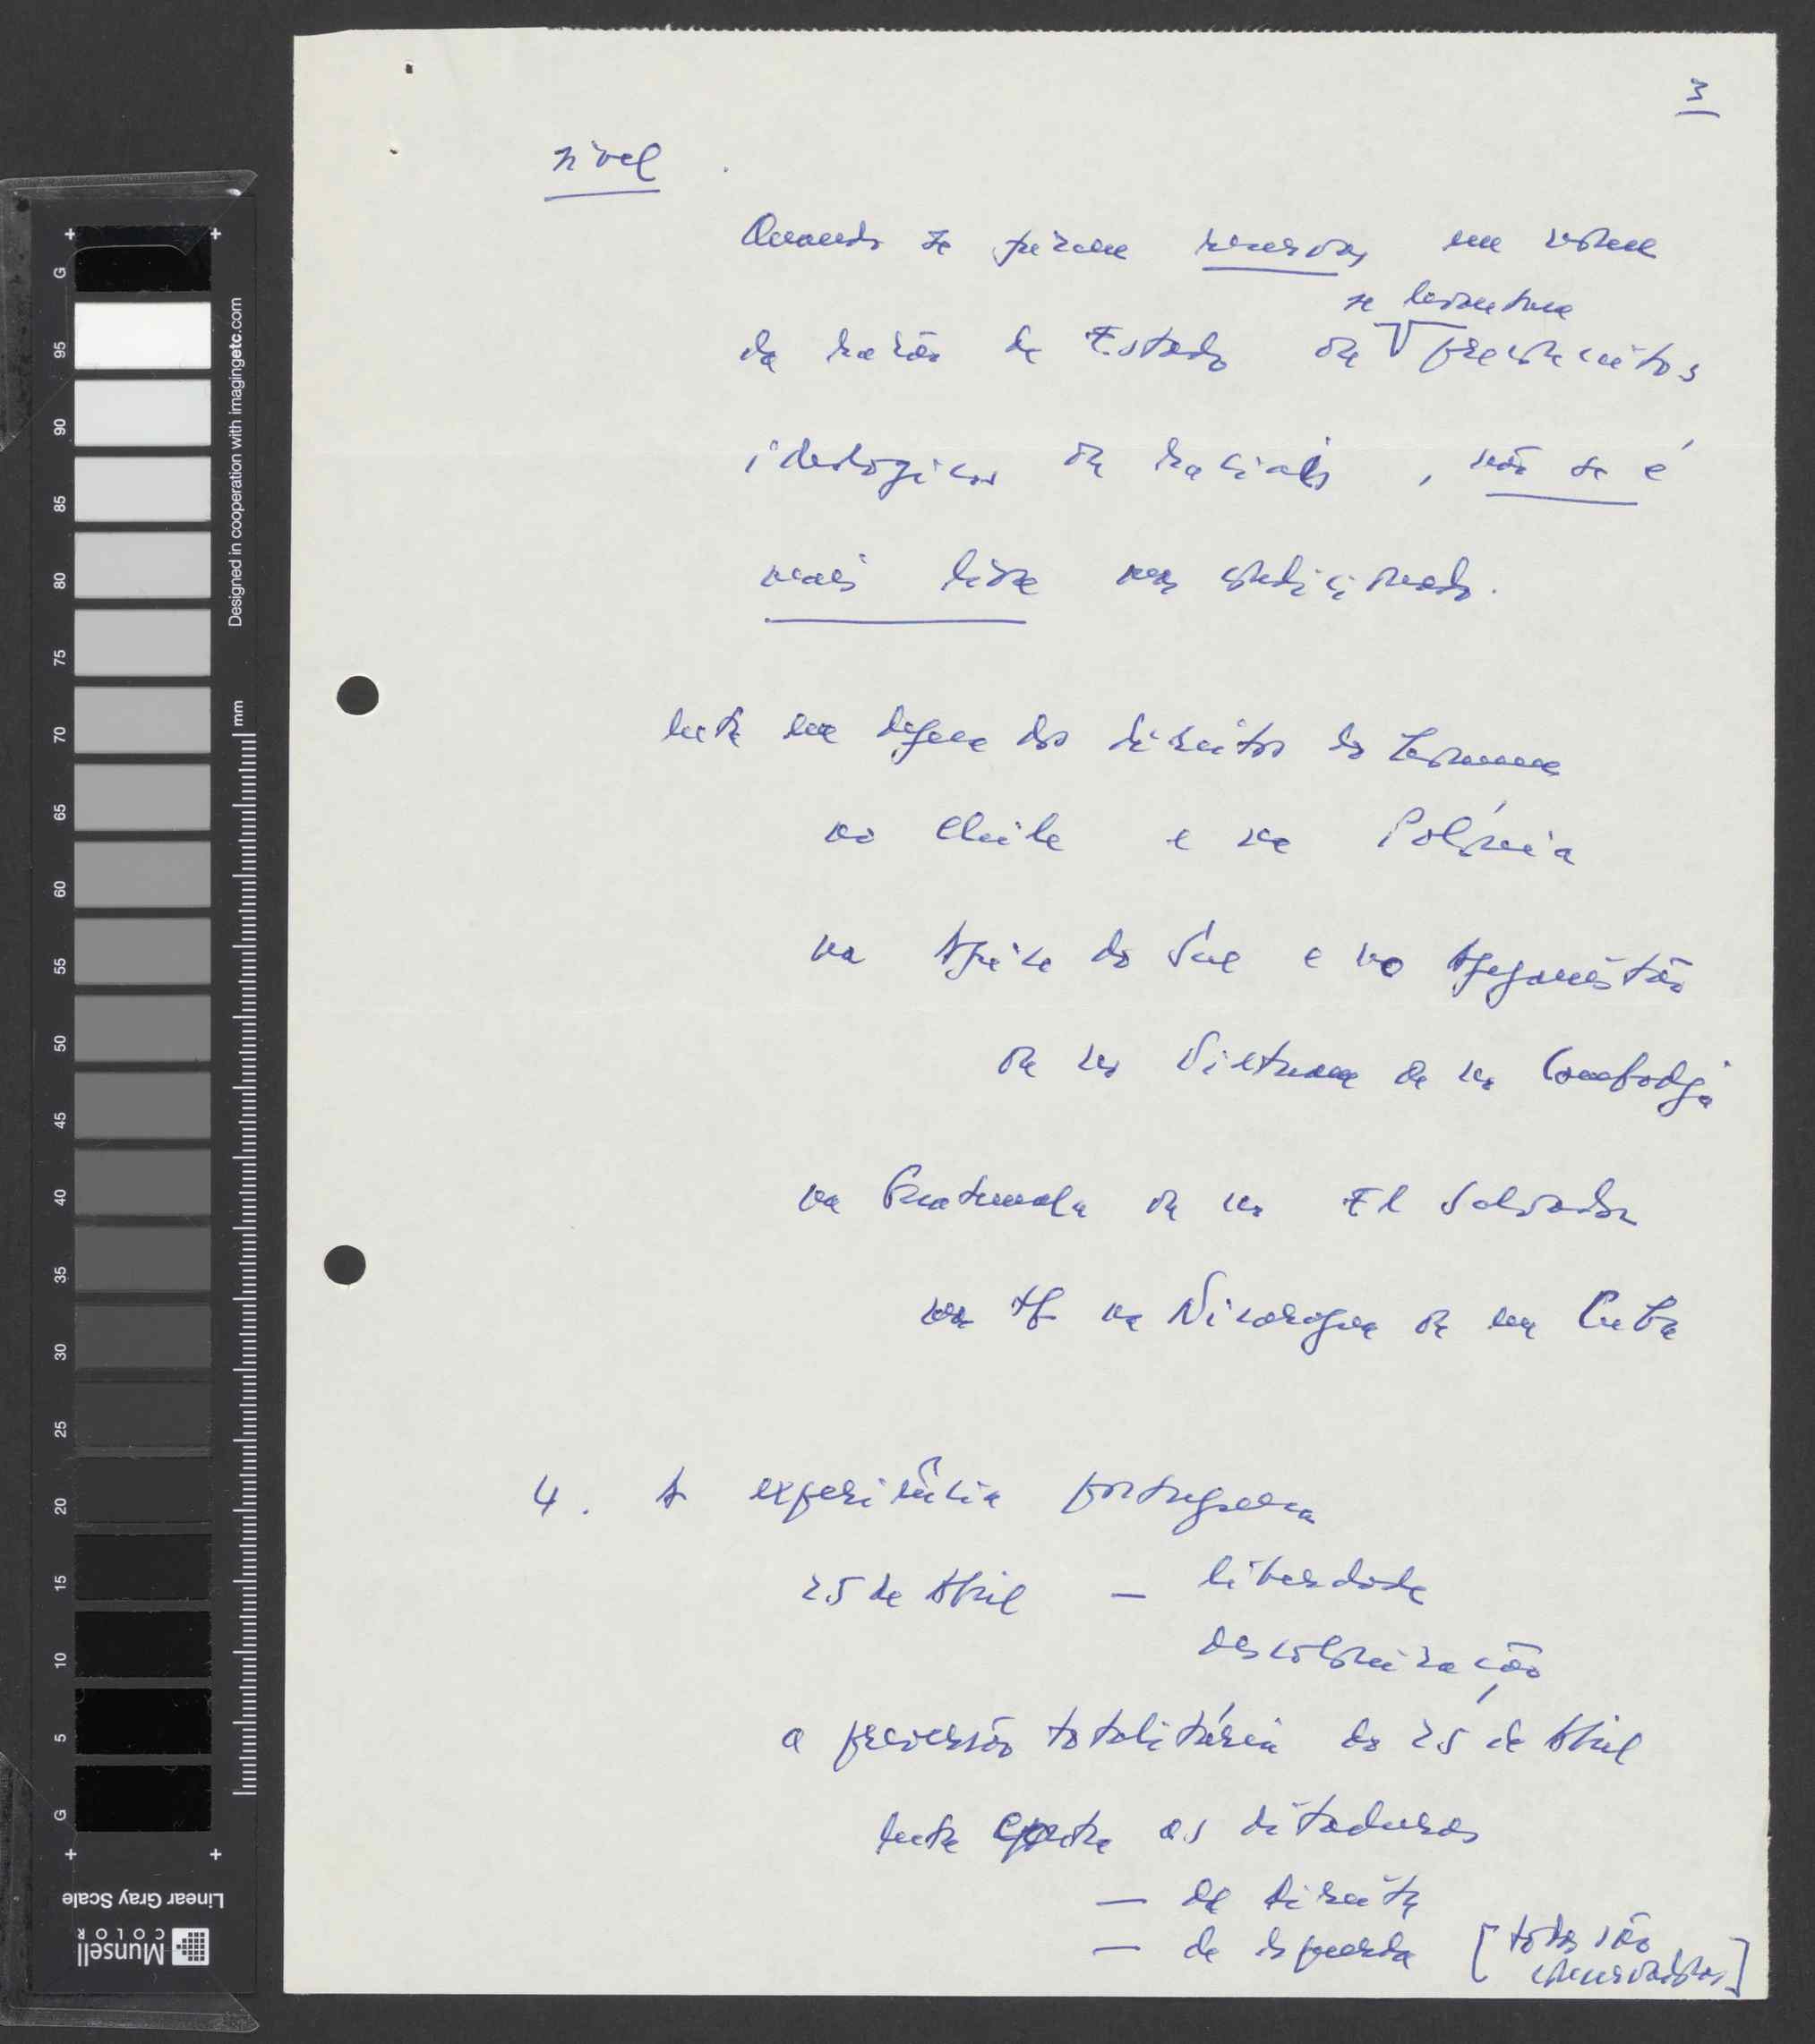 3
nível
Quando se fazem reservas, em nome
se levantam
da razão de Estado ou preconceitos
ideológicos ou raciais, não se é
mais livre mas condicionado.
luta em defesa dos direitos do homem
no Chile e na Polónia
na Africa do Sul e no Afeganistão
ou no Vietnam ou no Cambodja
na Guatemala ou no El Salvador
na Nicaragua ou em Cuba
4. A experiência portuguesa
25 de Abril — liberdade
descolonização
a perversão totalitária do 25 de Abril
luta contra as ditaduras
— de direita
— de esquerda [todas são
conservadoras]
G
95
90
85
80
75
70
65
60
55
50
45
40
35
30
25
20
15
10
5
G
Designed in cooperation with imagingetc.com
mm
Linear Gray Scale
Munsell
COLOR